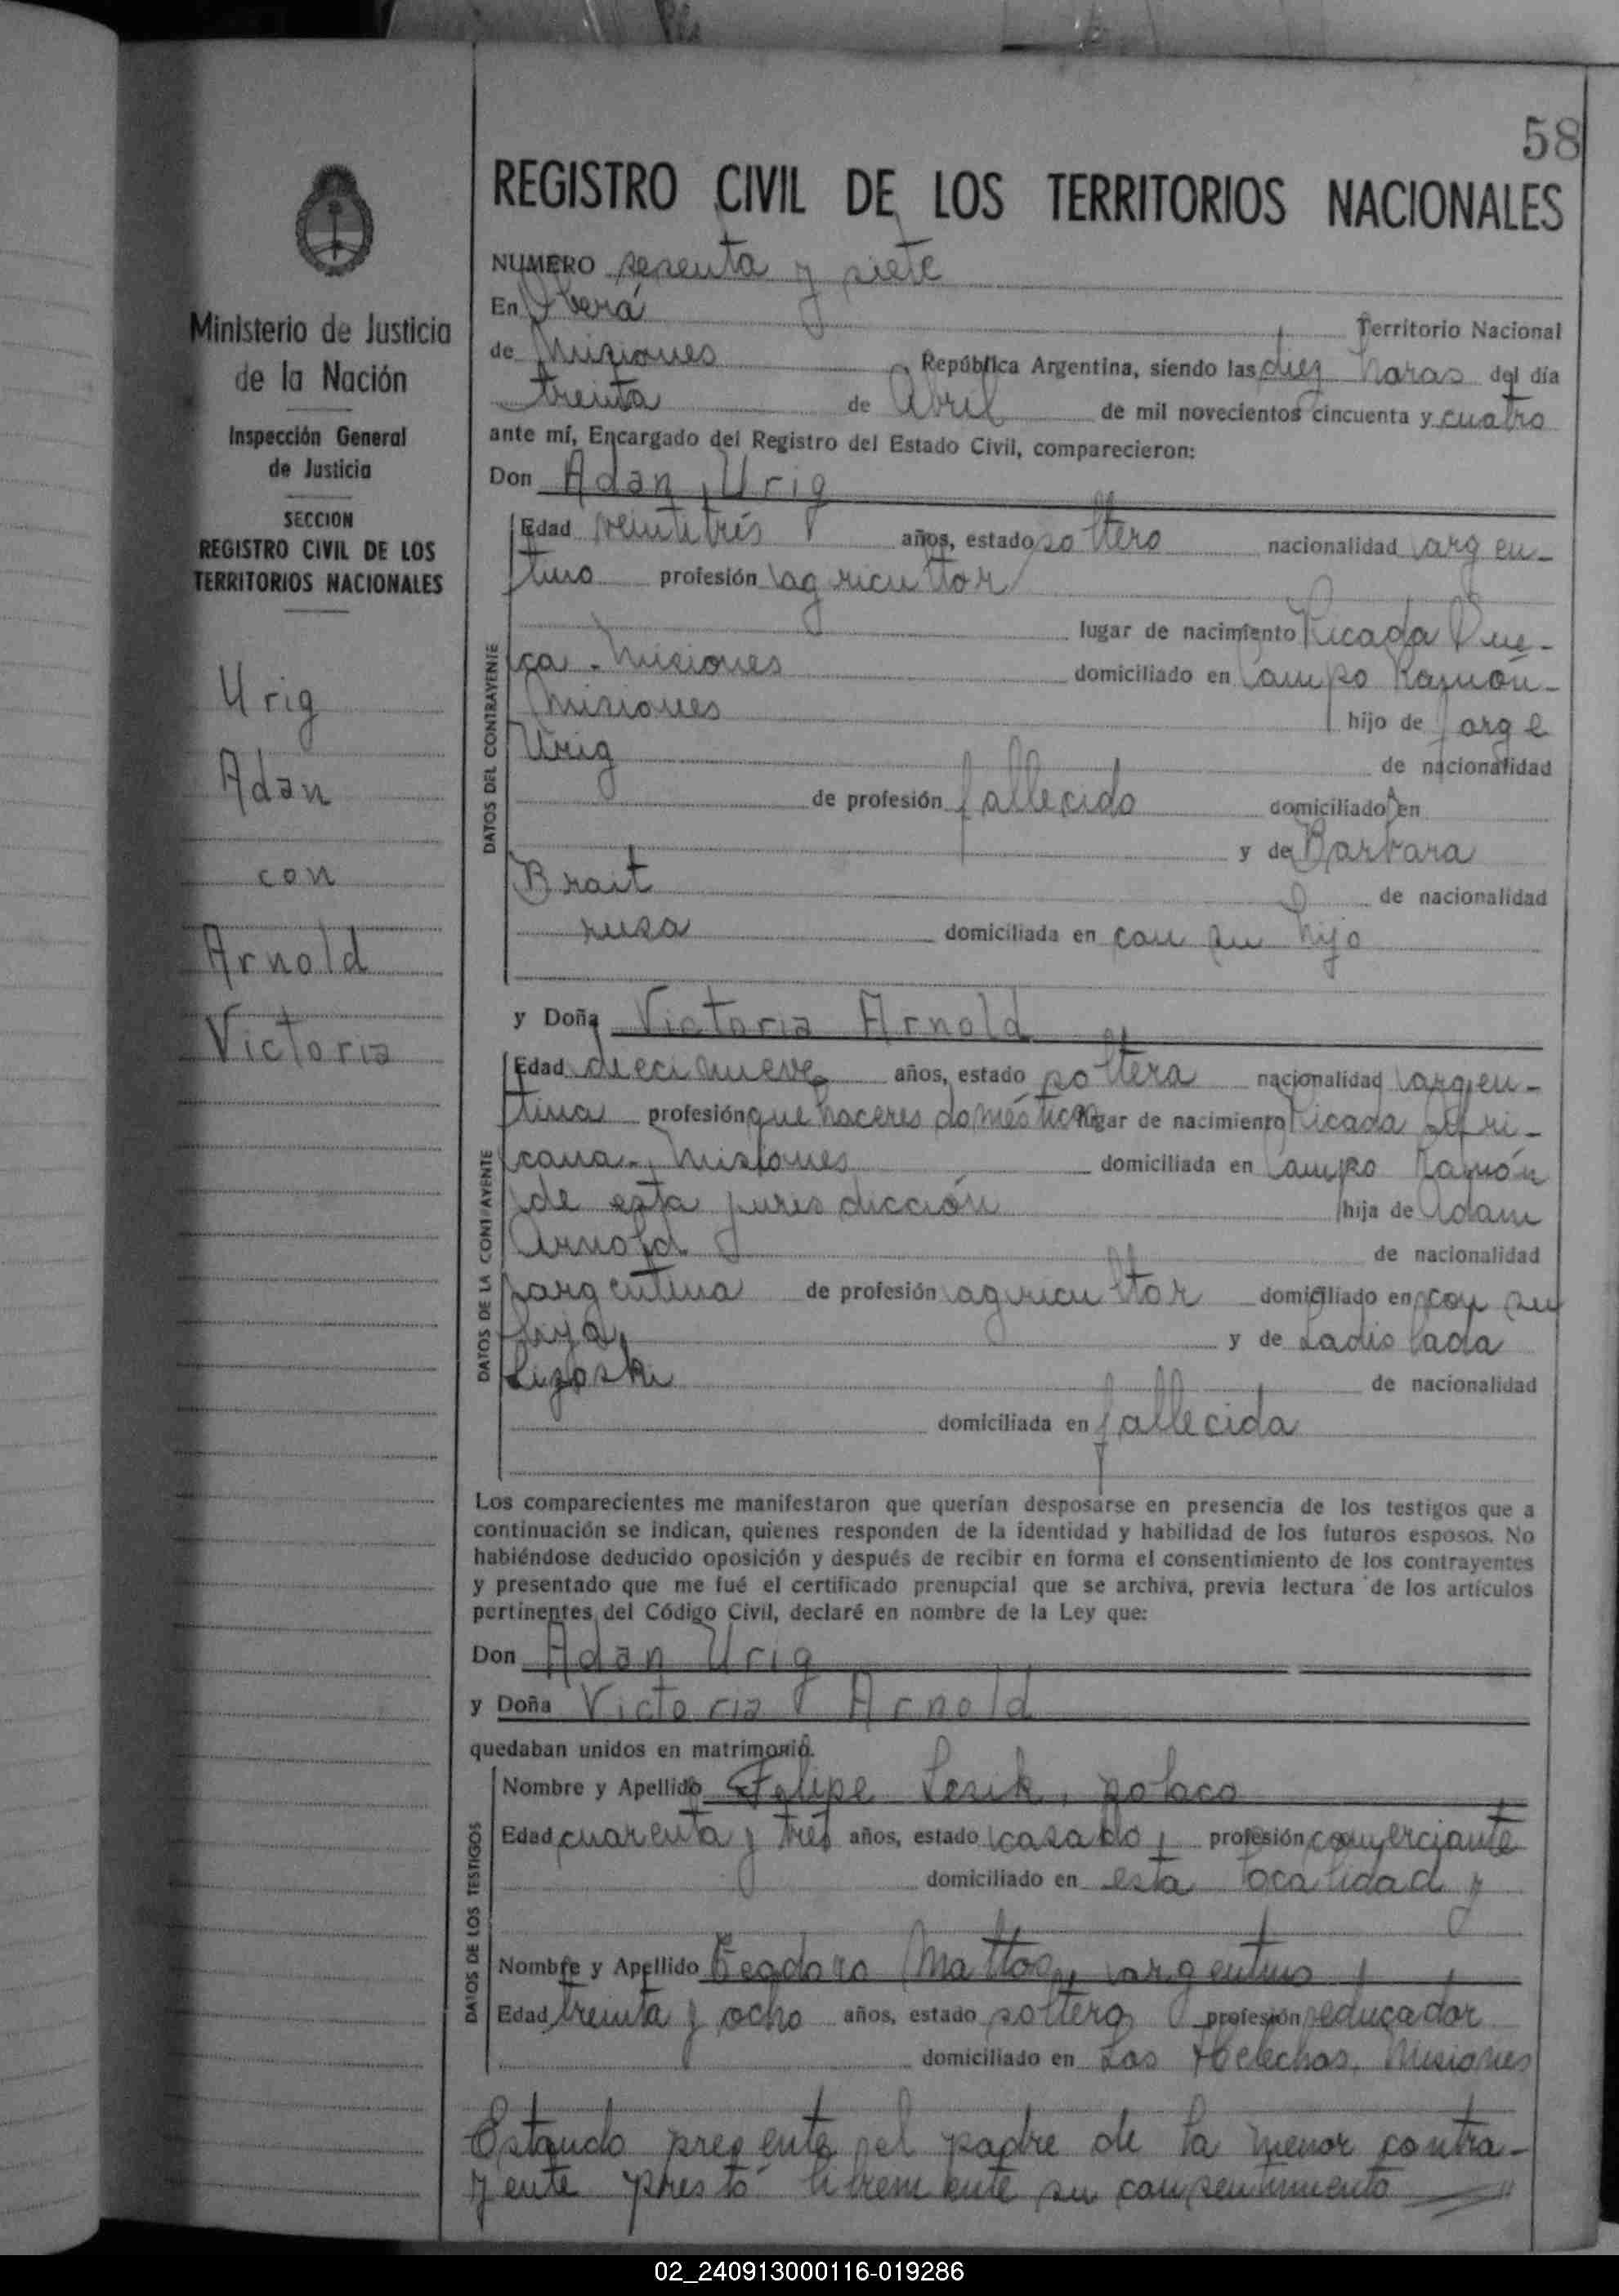 58
REGISTRO CIVIL DE LOS TERRITORIOS NACIONALES
Ministerio de Justicia
de la Nación
Inspección General
de Justicia
SECCION
REGISTRO CIVIL DE LOS
TERRITORIOS NACIONALES
Urig
Adan
con
Arnold
Victoria
NUMERO sesenta y siete
En Oberá Territorio Nacional
de Misiones, República Argentina, siendo las diez horas del día
treinta de Abril de mil novecientos cincuenta y cuatro
ante mí, Encargado del Registro del Estado Civil, comparecieron:
Don Adan Urig
DATOS DEL CONTRAYENTE
Edad veintitrés años, estado soltero nacionalidad argen-
tino profesión agricultor
lugar de nacimiento Picada Sue-
ca - Misiones domiciliado en Campo Ramón-
Misiones hijo de Jorge
Urig de nacionalidad
de profesión fallecido domiciliado en
y de Barbara
Brait de nacionalidad
rusa domiciliada en con su hijo
y Doña Victoria Arnold
DATOS DE LA CONTRAYENTE
Edad diecinueve años, estado soltera nacionalidad argen-
tina profesión que haceres domésticos lugar de nacimiento Picada Afri-
cana - Misiones domiciliada en Campo Ramón
de esta jurisdicción hija de Adam
Arnold de nacionalidad
argentina de profesión agricultor domiciliado en con su
hija, y de Ladislada
de nacionalidad
domiciliada en fallecida
Los comparecientes me manifestaron que querían desposarse en presencia de los testigos que a
continuación se indican, quienes responden de la identidad y habilidad de los futuros esposos. No
habiéndose deducido oposición y después de recibir en forma el consentimiento de los contrayentes
y presentado que me fué el certificado prenupcial que se archiva, previa lectura de los artículos
pertinentes del Código Civil, declaré en nombre de la Ley que:
Don Adan Urig
y Doña Victoria Arnold
quedaban unidos en matrimonio.
DATOS DE LOS TESTIGOS
Nombre y Apellido Felipe Lesik, polaco
Edad cuarenta y tres años, estado casado, profesión comerciante
domiciliado en esta localidad y
Nombre y Apellido Teodoro Mattos, argentino
Edad treinta y ocho años, estado soltero profesión educador
domiciliado en Los Helechos, Misiones
Estando presente el padre de la menor contra-
yente prestó libremente su consentimiento
02_240913000116-019286